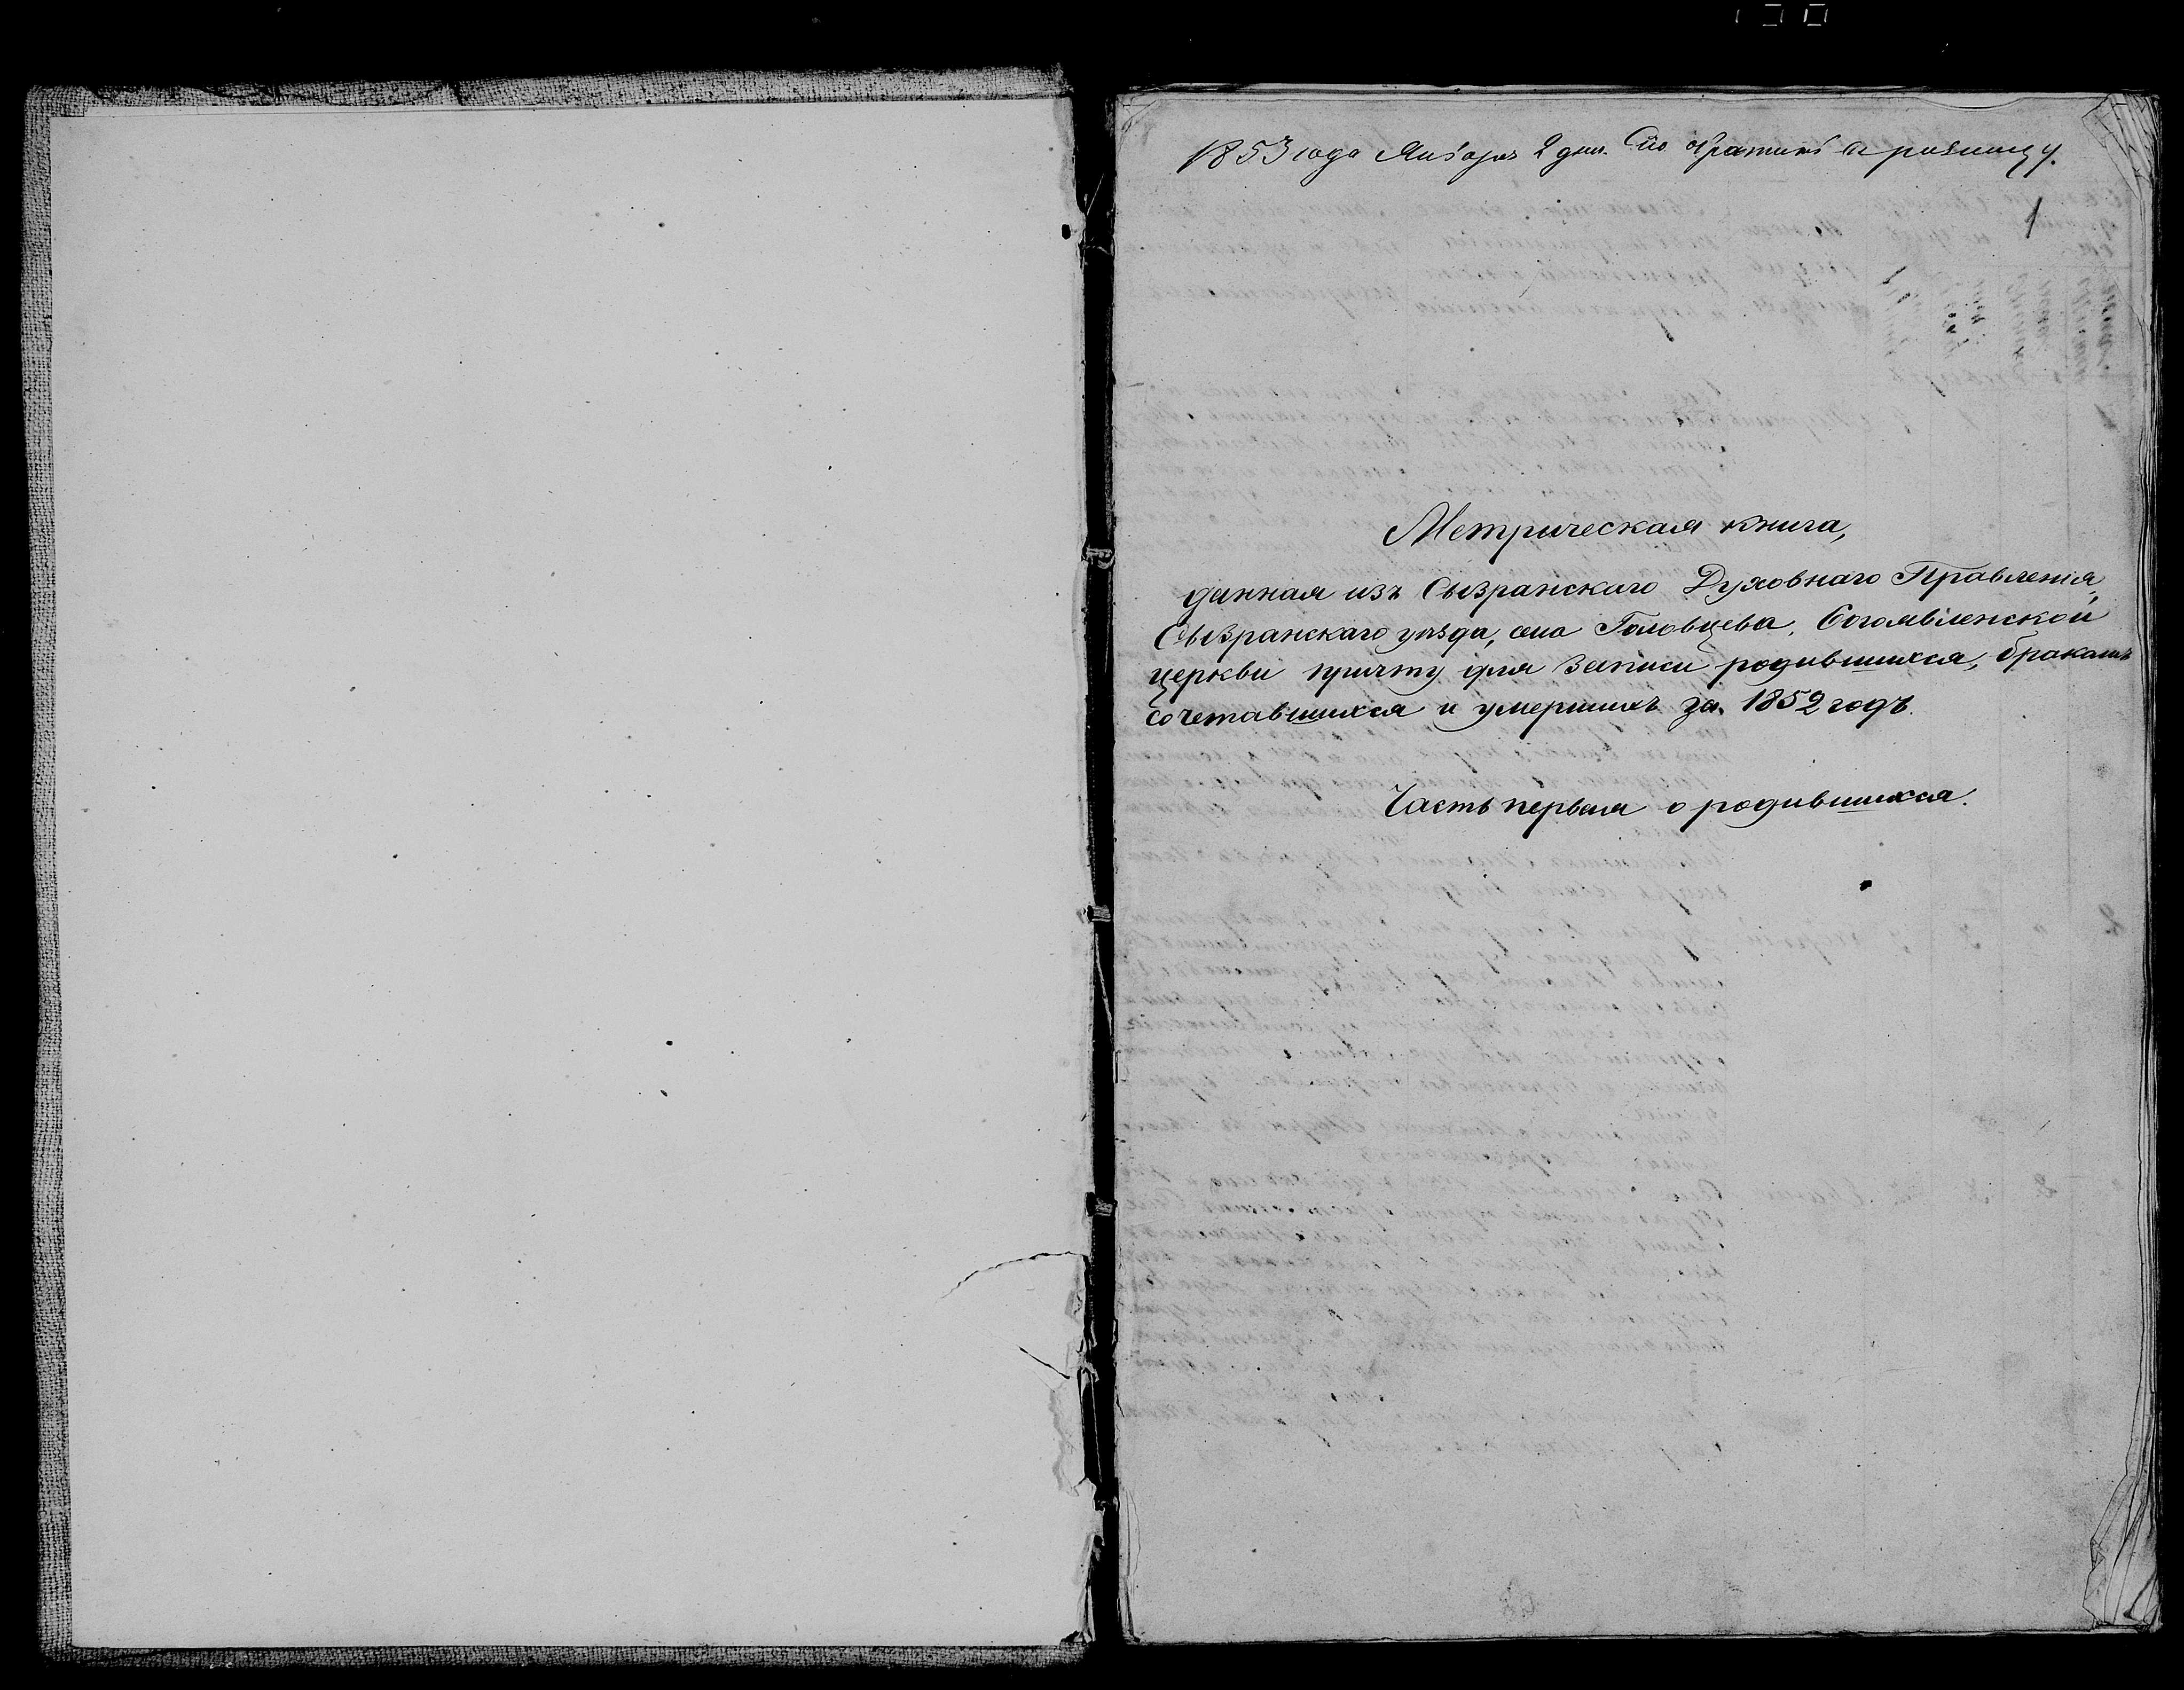 1853 года Января 2 дня. Сію обратить въ ризницу.
1
Метрическая книга,
данная изъ Сызранскаго Духовнаго Правленія,
Сызранскаго уѣзда, села Головцева, Богоявленской
церкви причту для записи родившихся, бракомъ
сочетавшихся и умершихъ за 1852 годъ.
Часть первая о родившихся.